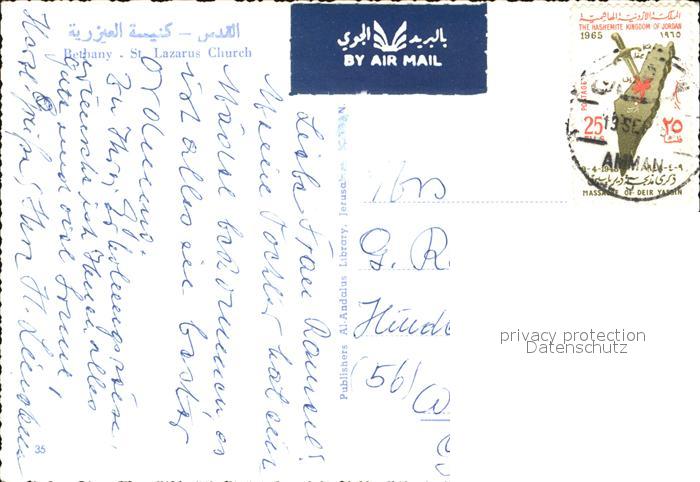 القدس – كنيسة العيزرية
Bethany - St. Lazarus Church
بالبريد الجوي
BY AIR MAIL
المملكة الأردنية الهاشمية
THE HASHEMITE KINGDOM OF JORDAN
1965 ١٩٦٥
POSTAGE
25 ٢٥
FILS فلسا
AMMAN
ذكرى مذبحة دير ياسين
MASSACRE OF DEIR YASSIN
Liebe Frau
Meine Tochter hat ein
Mädel bekommen es
ist alles in bester
Ordnung.
Zu Ihrer
wünsche ich Ihnen alles
Gute und viel Sonne!
Herzl. Grüße, Ihre H.
Publishers Al-Andalus Library, Jerusalem
G. R
(56)
35
privacy protection
Datenschutz